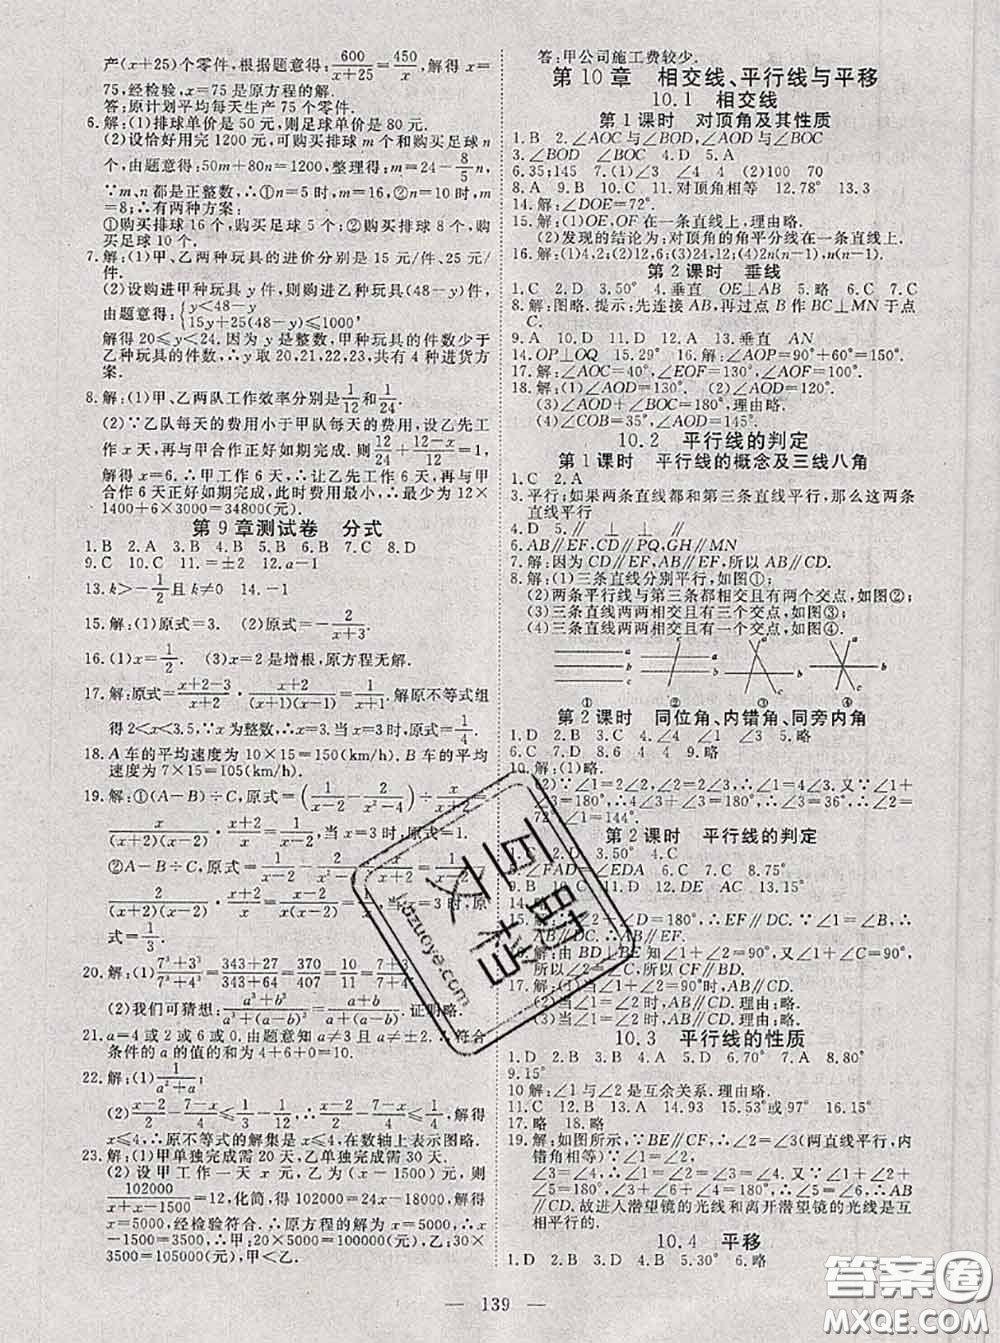 产(x+25)个零件,根据题意得:600/(x+25)=450/x,解得 x=
75,经检验,x=75 是原方程的解.
答:原计划平均每天生产 75 个零件.
6.解:(1)排球单价是 50 元,则足球单价是 80 元.
(2)设恰好用完 1200 元,可购买排球 m 个和购买足球 n
个,由题意得:50m+80n=1200,整理得:m=24-8/5 n,
∵m、n 都是正整数,∴①n=5 时,m=16,②n=10 时,m
=8;∴有两种方案:
①购买排球 16 个,购买足球 5 个;②购买排球 8 个,购
买足球 10 个.
7.解:(1)甲、乙两种玩具的进价分别是 15 元/件,25 元/
件.
(2)设购进甲种玩具 y 件,则购进乙种玩具(48-y)件,
由题意得:{y<48-y
15y+25(48-y)≤1000,
解得 20≤y<24.因为 y 是整数,甲种玩具的件数少于
乙种玩具的件数,∴y 取 20,21,22,23,共有 4 种进货方
案.
8.解:(1)甲、乙两队工作效率分别是1/12和1/24.
(2)∵乙队每天的费用小于甲队每天的费用,设乙先工
作 x 天,再与甲合作正好如期完成.则12/24+(12-x)/12=1,
解得 x=6.∴甲工作 6 天,∴让乙先工作 6 天,再与甲
合作 6 天正好如期完成,此时费用最小.最少为 12×
1400+6×3000=34800(元).
第 9 章测试卷 分式
1.B 2.A 3.B 4.B 5.B 6.C 7.C 8.D
9.C 10.C 11.=±2 12.a-1
13.k>-1/2且 k≠0 14.-1
15.解:(1)原式=3. (2)原式=-2/(x+3).
16.(1)x=1/2. (3)x=2 是增根,原方程无解.
17.解:原式=(x+2-3)/(x+2)·(x+2)/((x+1)(x-1))=1/(x+1).解原不等式组
得 2<x<3.5,∵x 为整数,∴x=3.当 x=3 时,原式=1/4.
18.A 车的平均速度为 10×15=150(km/h).B 车的平均
速度为 7×15=105(km/h).
19.解:①(A-B)÷C,原式=(1/(x-2)-2/(x²-4))÷x/(x+2)=
x/((x+2)(x-2))·(x+2)/x=1/(x-2),当 x=3 时,原式=1.
②A-B÷C,原式=1/(x-2)-2/(x²-4)÷x/(x+2)=1/(x-2)-
2/((x+2)(x-2))·(x+2)/x=1/x,当 x=3 时,原
式=1/3.
20.解:(1)(7³+3³)/(7³+4³)=(343+27)/(343+64)=370/407=10/11=(7+3)/(7+4)
(2)我们可猜想:(a³+b³)/(a³+(a-b)³)=(a+b)/(a+(a-b)).证明略.
21.a=4 或 2 或 6 或 0.由题意知 a≠3 或 a≠±2.∴符合
条件的 a 的值的和为 4+6+0=10.
22.解:(1)1/(a²+a);
(2)(x-2)/2-(7-x)/4≤(1/3-1/4)÷1/(3×4) ∴(x-2)/2-(7-x)/4≤1 ∴
x≤4,∴原不等式的解集是 x≤4,在数轴上表示图略.
23.解:(1)甲单独完成需 20 天,乙单独完成需 30 天.
(2)设甲工作一天 x 元,乙为(x-1500)元,则
102000/(x+x-1500)=12,化简,得 102000=24x-18000,解得
x=5000,经检验符合.∴原方程的解为 x=5000,∴x-
1500=3500(元).甲:20×5000=100000(元),乙:30×
3500=105000(元),甲<乙.
答:甲公司施工费较少.
第 10 章 相交线、平行线与平移
10.1 相交线
第 1 课时 对顶角及其性质
1.B 2.∠AOC 与∠BOD,∠AOD 与∠BOC
3.∠BOD ∠BOC 4.D 5.A
6.35;145 7.(1)∠3 ∠4 (2)100 70
8.A 9.B 10.C 11.对顶角相等 12.78° 13.3
14.解:∠DOE=72°.
15.解:(1)OE,OF 在一条直线上,理由略.
(2)发现的结论为:对顶角的角平分线在一条直线上.
16.(1)4,2;(2)12,6;(3)24,12;(4)2n(n-1),n(n-1)
第 2 课时 垂线
1.C 2.D 3.50° 4.垂直 OE⊥AB 5.C 6.C 7.C
8.解:图略.提示:先连接 AB,再过点 B 作 BC⊥MN 于点
C.
9.B 10.A 11.D 12.A 13.垂直 AN
14.OP⊥OQ 15.29° 16.解:∠AOP=90°+60°=150°.
17.解:∠AOC=40°,∠EOF=130°,∠AOF=100°.
18.解:(1)∠AOD=130°. (2)∠AOD=120°.
(3)∠AOD+∠BOC=180°,理由略.
(4)∠COB=35°,∠AOD=145°.
10.2 平行线的判定
第 1 课时 平行线的概念及三线八角
1.C 2.A
3.平行;如果两条直线都和第三条直线平行,那么这两条
直线平行
4.D 5.略
6.AB∥EF,CD∥PQ,GH∥MN
7.解:因为 CD∥EF,AB∥EF,所以 AB∥CD.
8.解:(1)三条直线分别平行,如图①;
(2)两条平行线与第三条都相交且有两个交点,如图②;
(3)三条直线两两相交且有三个交点,如图③;
(4)三条直线两两相交且有一个交点,如图④.
① ② ③ ④
第 2 课时 同位角、内错角、同旁内角
1.D 2.B 3.C 4.∠4 ∠1 ∠2 5.略
6.C 7.D 8.∠B ∠A ∠ACB ∠B 9.略
10.解:(1)略.
(2)∵∠1=2∠2,∠2=2∠3,∴∠1=4∠3.又∵∠1+
∠3=180°,∴4∠3+∠3=180°.∴∠3=36°,∠2=
72°,∠1=144°.
第 2 课时 平行线的判定
2.D 3.50° 4.C
5.∠FAD=∠EDA 6.B 7.C 8.75°
9.B 10.A 11.C 12.DE AC
15.解:∵∠2+∠D=180°,∴EF∥DC.∵∠1=∠B,∴
由 BD⊥BE 知∠1+∠2=90°,又∠1+∠C=90°,
所以∠2=∠C.所以 AB∥CD.
17.解:(1)当∠1=∠2 时,AB∥CD.理由:略;
(2)当∠1=∠2 时,AB∥CD.理由:略;
(3)当∠1=∠2 时,AB∥CD.理由:略.
10.3 平行线的性质
1.D 2.B 3.B 4.A 5.D 6.70° 7.A 8.80°
9.15°
10.解:∠1 与∠2 是互余关系.理由略.
11.C 12.C 13.A 14.93 15.53°或 97° 16.15°
17.略 18.略
19.解:如图所示,∵BE∥CF,∴∠2=∠3(两直线平行,内
错角相等)∵∠1=∠2,∠3=∠4.∴∠1=∠2=
∠3=∠4,∴∠1+∠2=∠3+∠4,∵∠5+∠1+
∠2=180°,∠6+∠3+∠4=180°,∴∠5=∠6,∴
AB∥CD.故进入潜望镜的光线和离开潜望镜的光线是互
相平行的.
10.4 平移
1.D 2.C 3.D 4.B 5.30° 6.略
— 139 —
答案圈
MXQE.COM